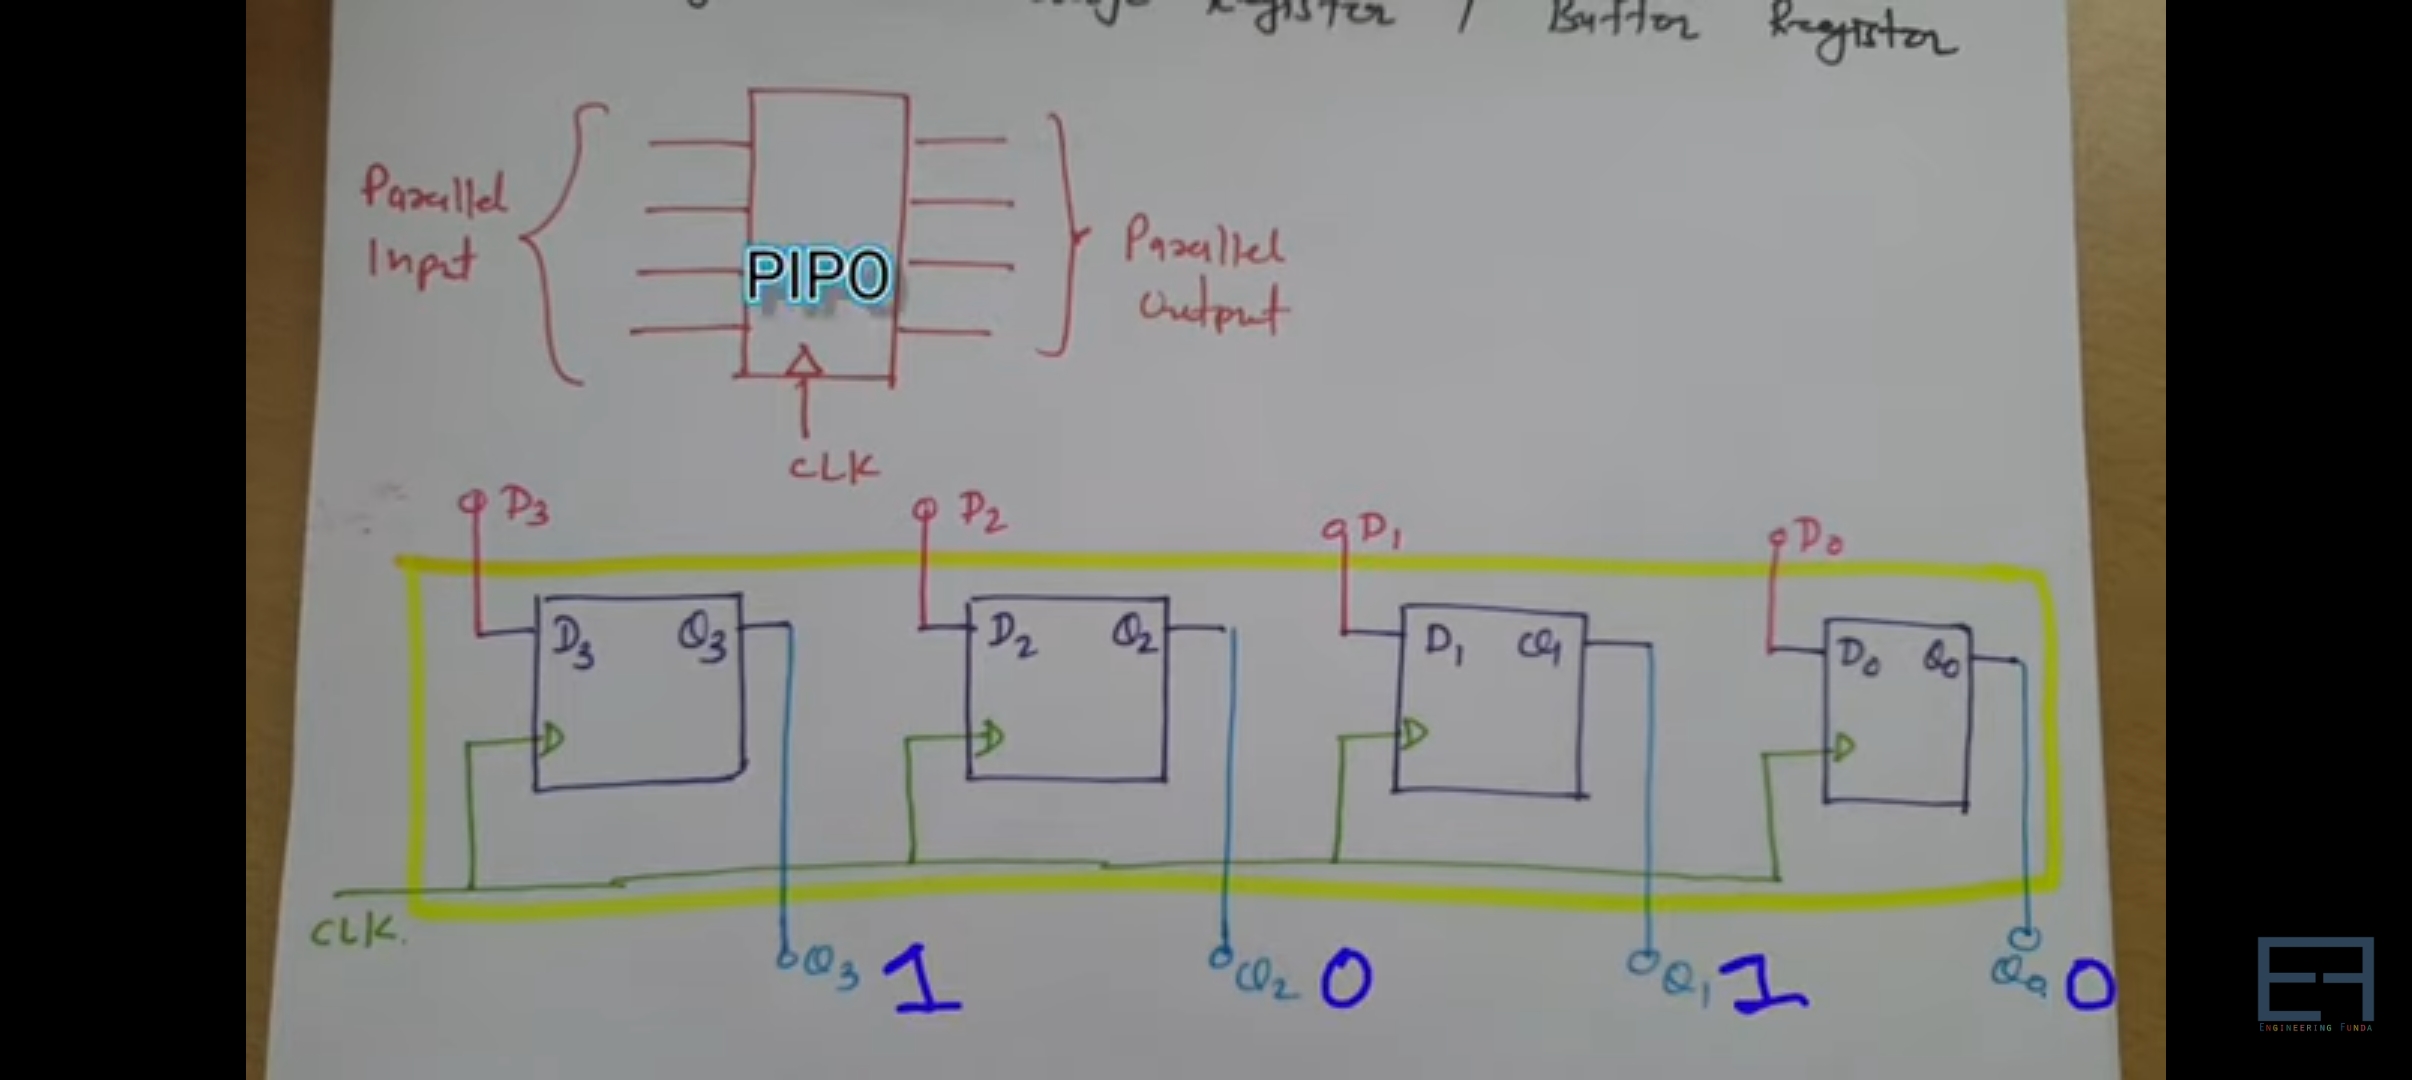 Register / Buffer Register
Parallel
Input
PIPO
Parallel
Output
CLK
D3 D2 D1 D0
D3 Q3 D2 Q2 D1 Q1 D0 Q0
CLK.
Q3 1 Q2 0 Q1 1 Q0 0
ENGINEERING FUNDA